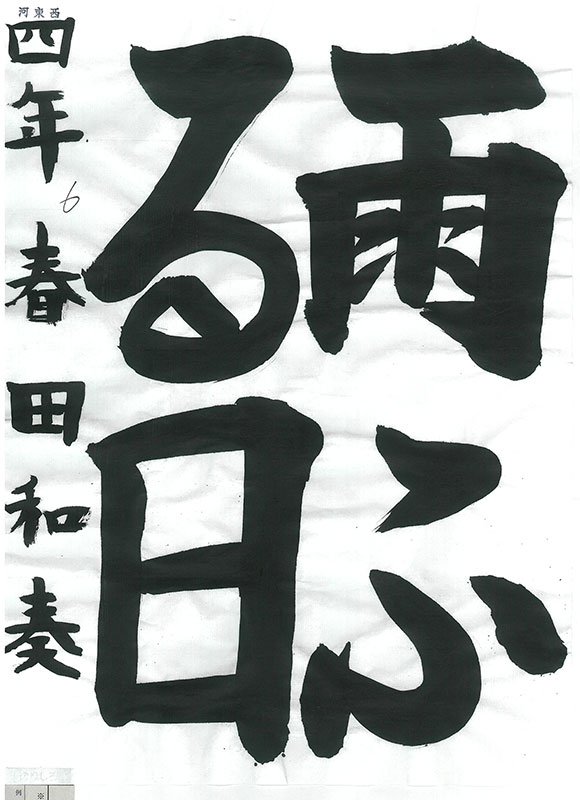 雨ふ
る日
四年 春田和奏
6
河東西
例 ※